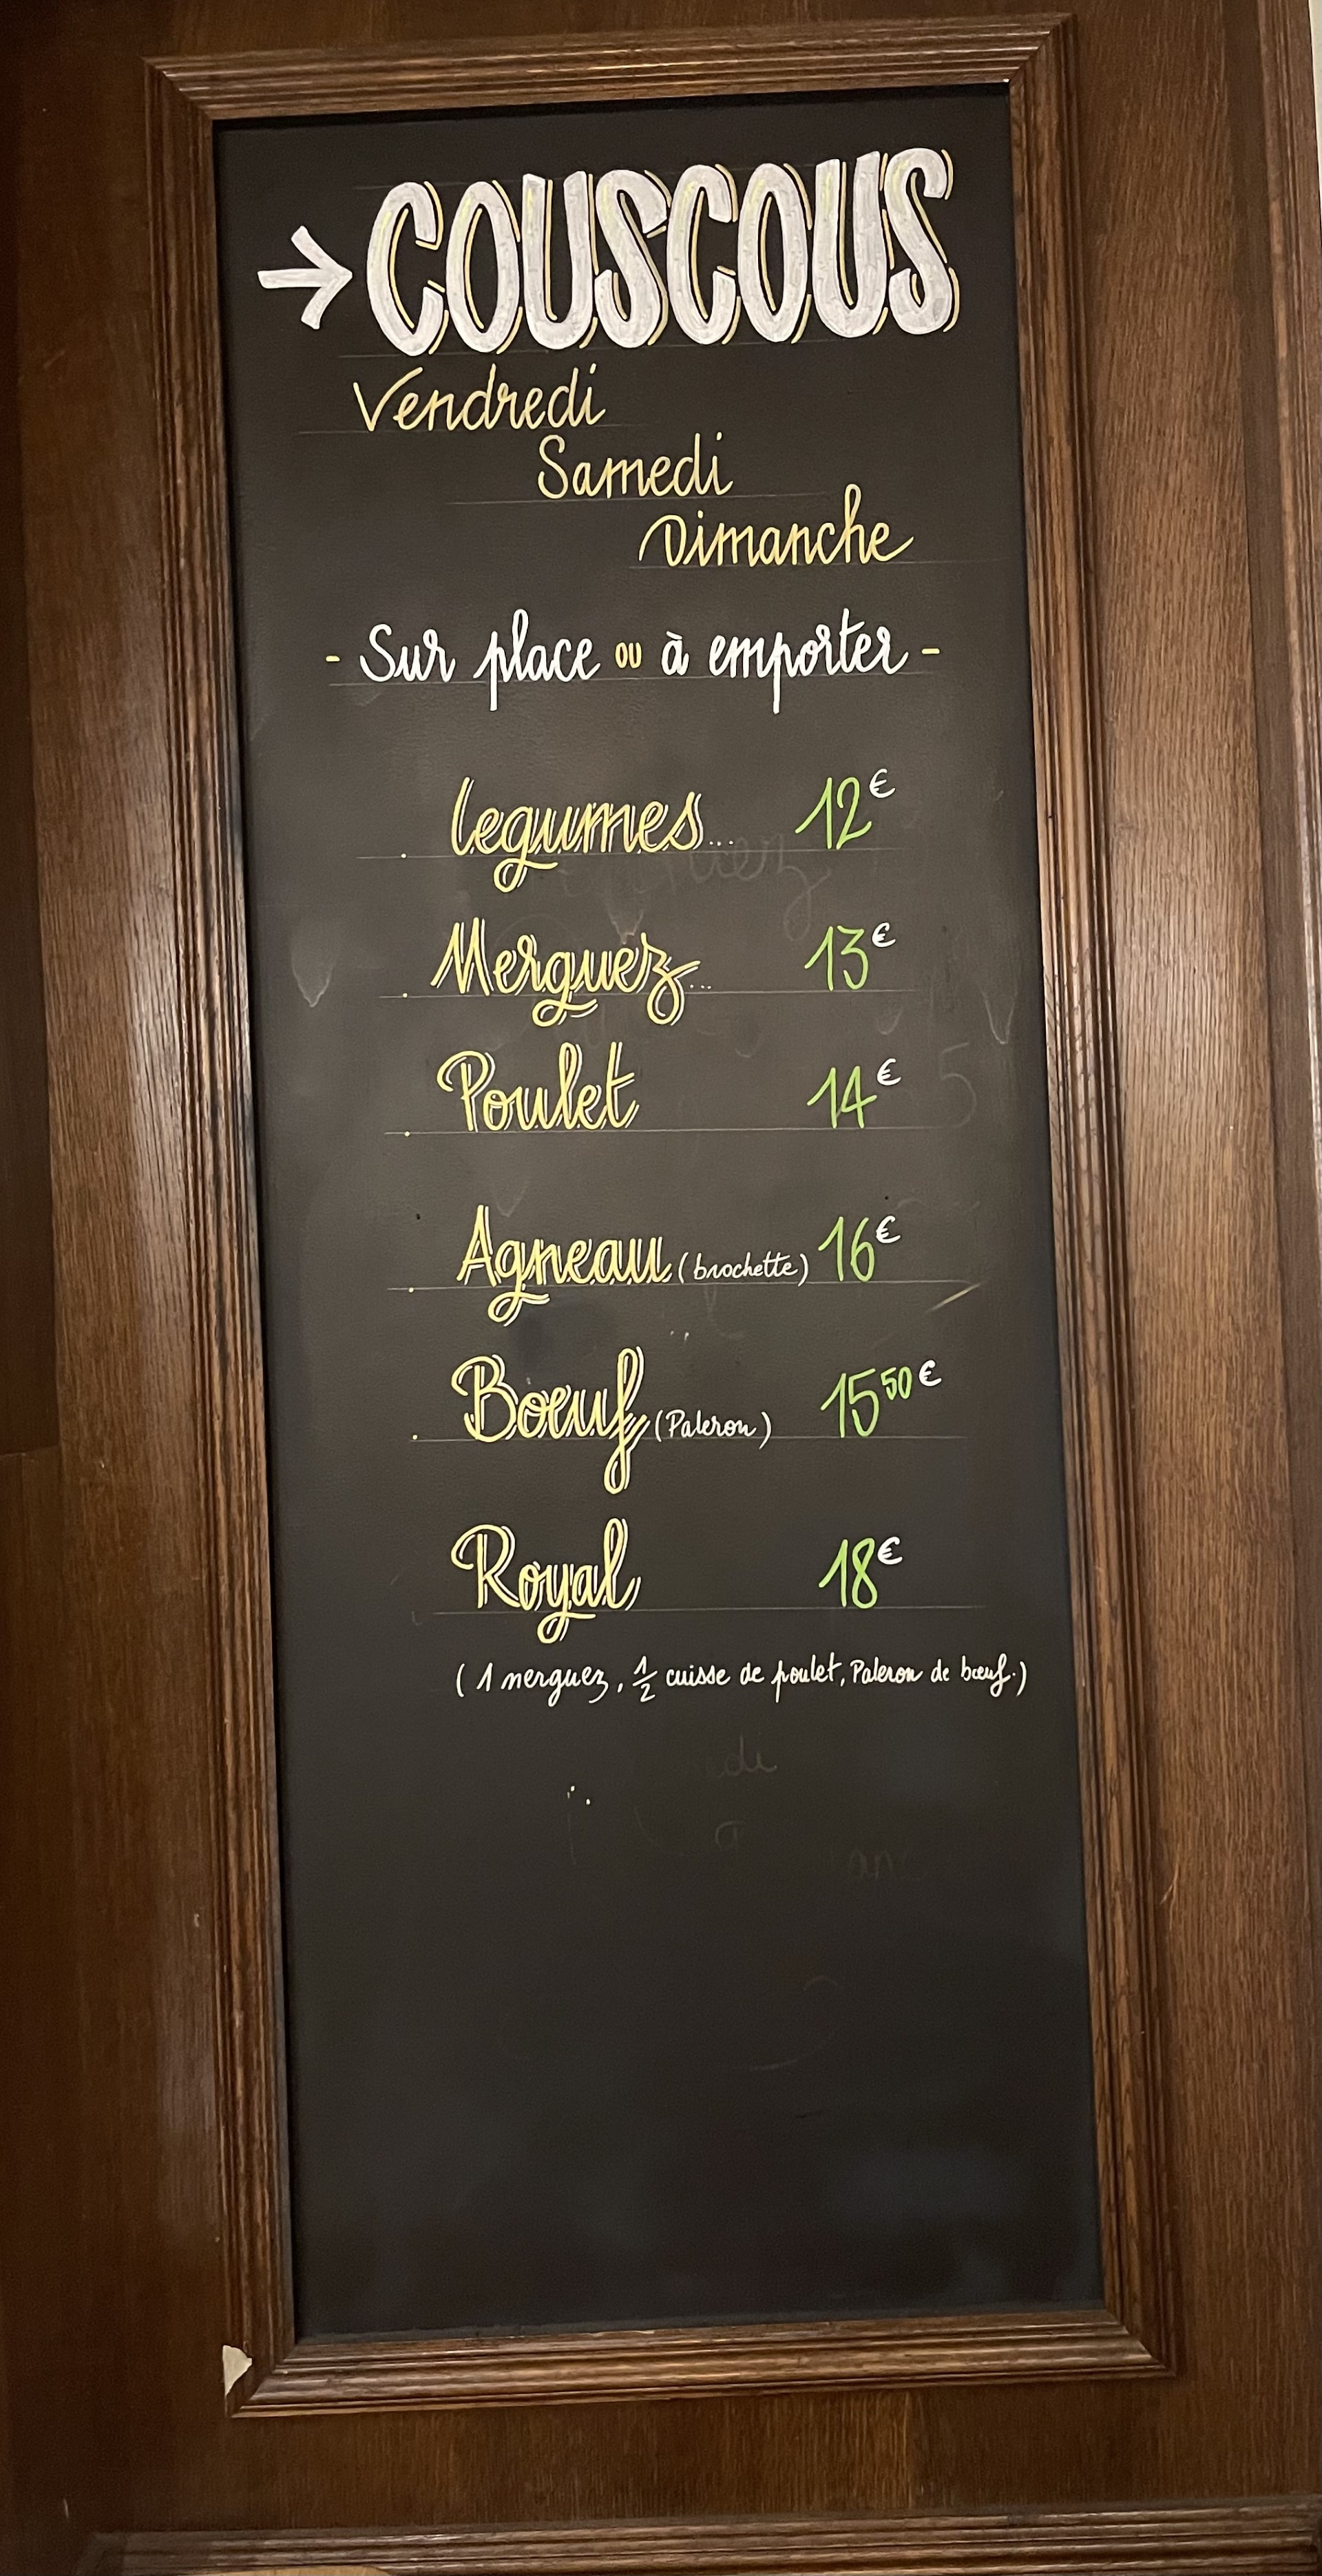 → COUSCOUS
Vendredi
Samedi
Dimanche
- Sur place ou à emporter -
legumes... 12€
Merguez... 13€
Poulet 14€
Agneau (brochette) 16€
Boeuf (Paleron) 1550€
Royal 18€
(1 merguez, 1/2 cuisse de poulet, Paleron de bœuf.)